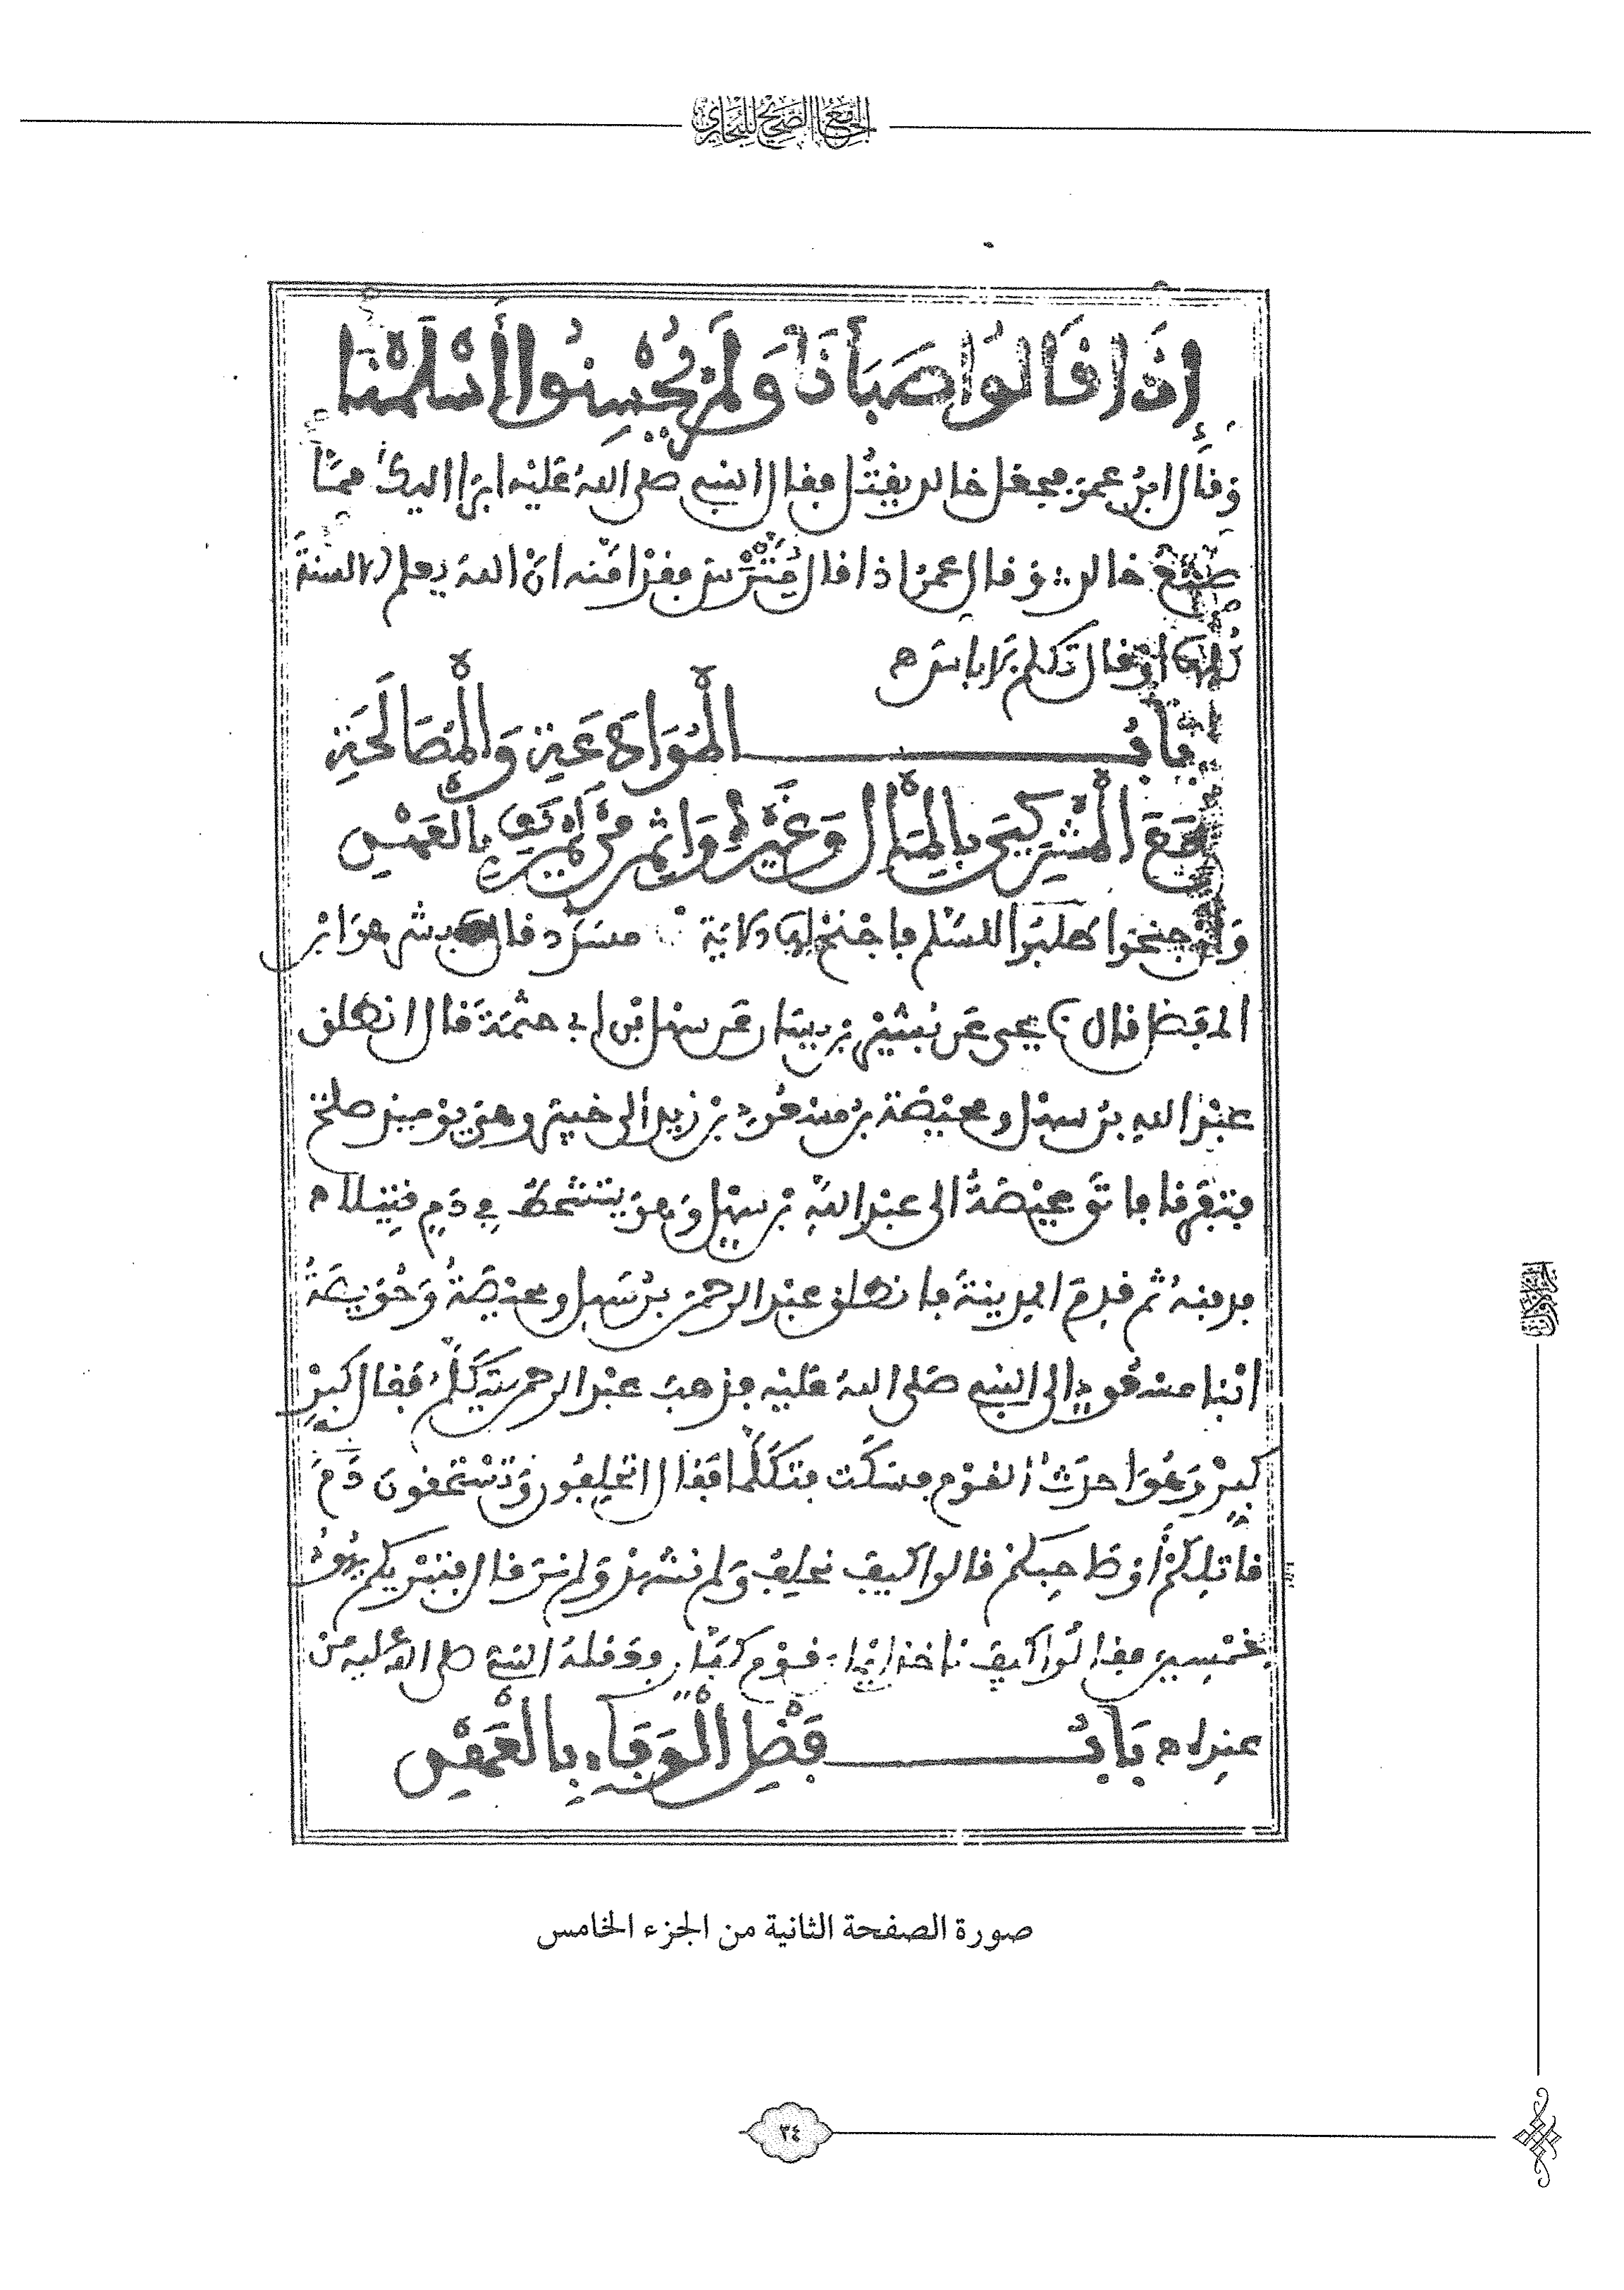 الجامع الصحيح للبخاري
إِذَا قَالُوا صَبَأْنَا وَلَمْ يُحْسِنُوا أَسْلَمْنَا
وقال ابن عمر فجعل خالد يقتل فقال النبي صلى الله عليه ابرا اليك مما
صنع خالد وقال عمر اذا قال مترس فقد امنه ان الله يعلم الالسنة
كلها او قال تكلم لا باس ه
باب الْمُوَادَعَةِ وَالْمُصَالَحَةِ
مَعَ الْمُشْرِكِينَ بِالْمَالِ وَغَيْرِهِ وَإِثْمِ مَنْ لَمْ يَفِ بِالْعَهْدِ
وان جنحوا طلبوا للسلم فاجنح لها الاية مسدد قال بشر هو ابن
المفضل قال يحيى عن بشير بن يسار عن سهل بن ابي حثمة قال انطلق
عبد الله بن سهل ومحيصة بن مسعود بن زيد الى خيبر وهي يومئذ صلح
فتفرقا فاتى محيصة الى عبد الله بن سهل وهو يتشحط في دم قتيلا ه
فدفنه ثم قدم المدينة فانطلق عبد الرحمن بن سهل ومحيصة وحويصة
ابنا مسعود الى النبي صلى الله عليه فذهب عبد الرحمن يتكلم فقال كبر
كبر وهو احدث القوم فسكت فتكلما فقال اتحلفون وتستحقون دم
قاتلكم أو صاحبكم قالوا كيف نحلف ولم نشهد ولم نر قال فتبريكم يهود
بخمسين فقالوا كيف ناخذ ايمان قوم كفار فعقله النبي صلى الله عليه من
عنده ه بَابُ فَضْلِ الْوَفَاءِ بِالْعَهْدِ
صورة الصفحة الثانية من الجزء الخامس
٣٤